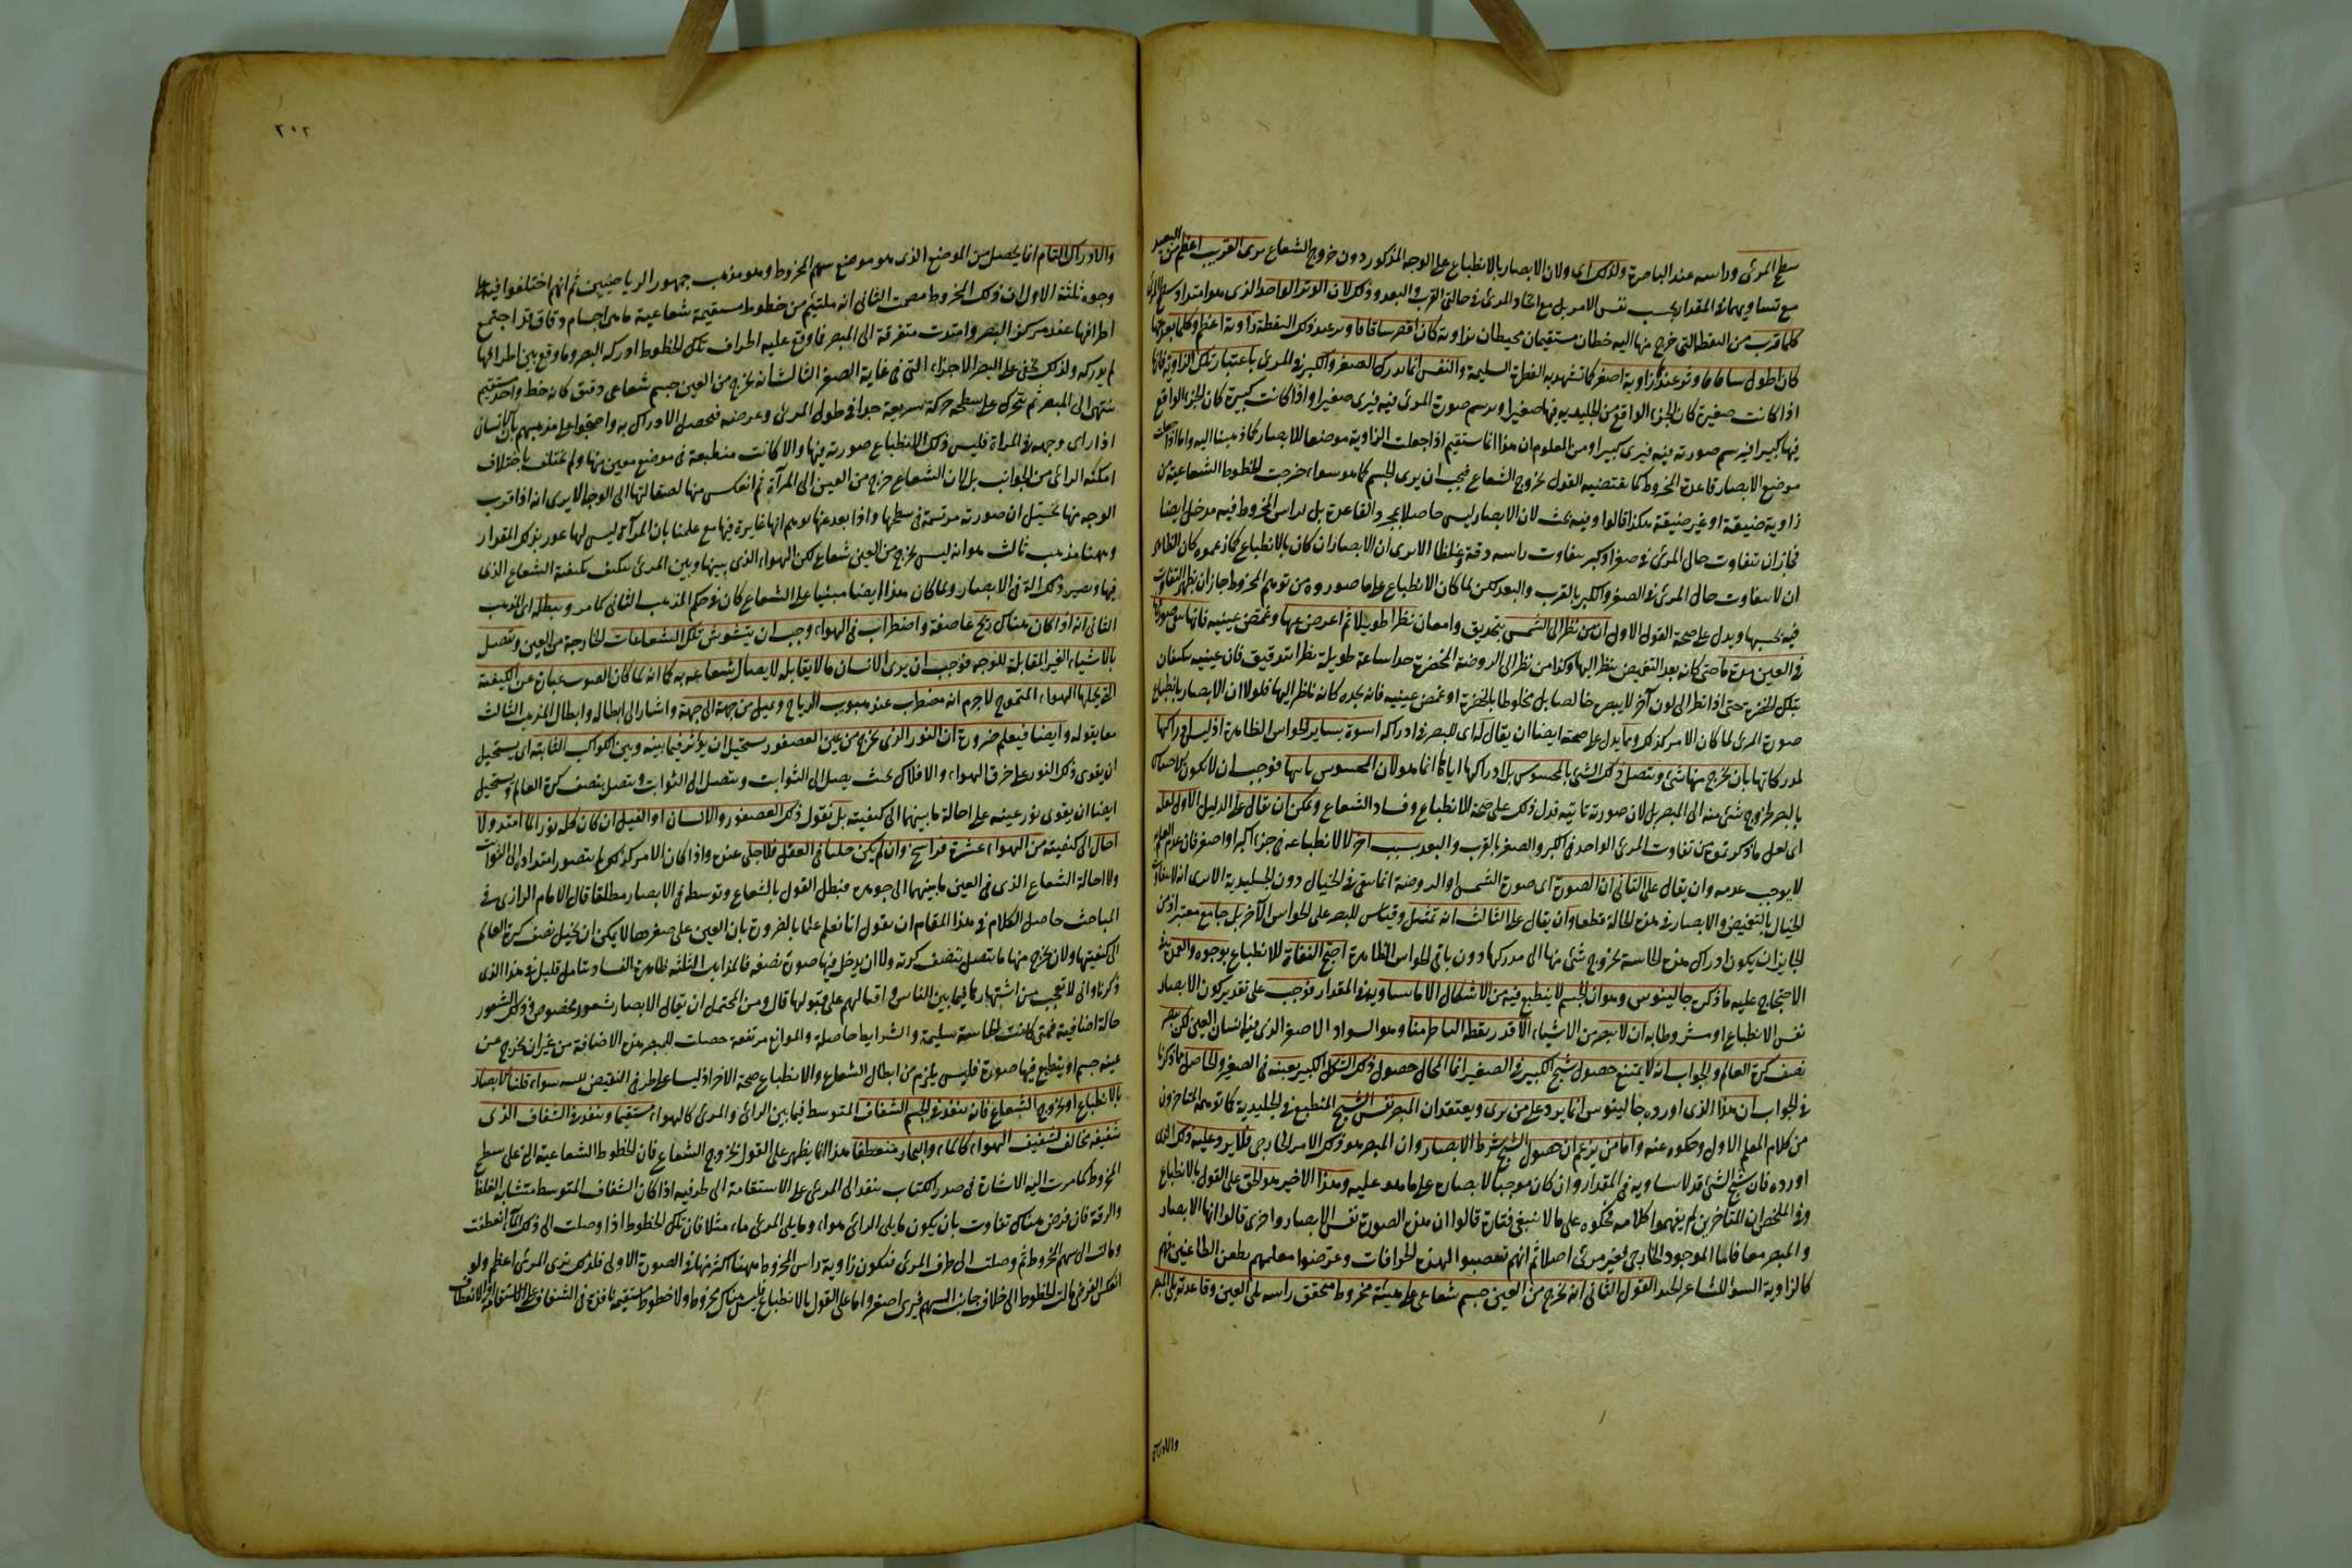 سطح المرئى وراسه عند الباصرة ولذلك اى ولان الابصار بالانطباع على الوجه المذكور دون خروج الشعاع يرى القريب اعظم من البعيد
مع تساويهما فى المقدار بحسب نفس الامر بل مع اتحاد المرئى فى حالتى القرب والبعد وذلك لان الوتر الواحد الذى هو امتداد سطح المرئى
كلما قرب من النقطة التى خرج منها اليه خطان مستقيمان محيطان بزاوية كان اقصر ساقا ووتر عند ذلك النقطة زاوية اعظم وكلما بعد عنها
كان اطول ساقا ووتر عندها زاوية اصغر كما تشهد به الفطرة السليمة والنفس انما تدرك الصغر والكبر فى المرئى باعتبار تلك الزاوية فانها
اذا كانت صغيرة كان الجزء الواقع من الجليدية فيها صغيرا ويرسم صورة المرئى فيه فيرى صغيرا واذا كانت كبيرة كان الجزء الواقع
فيها كبيرا فيرسم صورته فيه فيرى كبيرا ومن المعلوم ان هذا انما يستقيم اذا جعلت الزاوية موضعا للابصار كما ذهبنا اليه واما اذا جعلت
موضع الابصار قاعدة المخروط كما يقتضيه القول بخروج الشعاع فيجب ان يرى الجسم كما هو سواء خرجت الخطوط الشعاعية من
زاوية ضيقة او غير ضيقة هكذا قالوا وفيه بحث لان الابصار ليس حاصلا بمجرد القاعدة بل لراس المخروط فيه مدخل ايضا
فجاز ان يتفاوت حال المرئى فى صغر او كبر بتفاوت راسه دقة وغلظا الا يرى ان الابصار ان كان بالانطباع كما زعموه كان الظاهر
ان لا يتفاوت حال المرئى فى الصغر والكبر بالقرب والبعد لكن لما كان الانطباع على ما صوروه من توهم المخروط جاز ان يظهر التفاوت
فيه بحسبها ويدل على صحة القول الاول ان من نظر الى الشمس بتحديق وامعان نظرا طويلا ثم اعرض عنها وغمض عينيه فانها تبقى صورتها
فى العين مدة ما حتى كانه بعد التغميض ينظر اليها وكذا من نظر الى الروضة المخضرة جدا ساعة طويلة نظرا بتدقيق فان عينيه تتكيفان
بتلك الخضرة حتى اذا نظر الى لون آخر لا يبصره خالصا بل مخلوطا بالخضرة او غمض عينيه فانه يجده كانه ناظر اليها فلولا ان الابصار بانطباع
صورة المرئى لما كان الامر كذلك ومما يدل على صحته ايضا ان يقال له اى للبصر فى ادراكه اسوة بسائر الحواس الظاهرة اذ ليس ادراكها
لمدركاتها بان يخرج منها شئ ويتصل ذلك الشئ بالمحسوس بل ادراكها اياها انما هو لان المحسوس ياتيها فوجب ان لا يكون الاحساس
بالبصر لخروج شئ منه الى المبصر بل لان صورته تاتيه فدل ذلك على صحة الانطباع وفساد الشعاع ويمكن ان يقال على الدليل الاول لعله
اى لعل ما ذكرتموه من تفاوت المرئى الواحد فى الكبر والصغر بالقرب والبعد بسبب آخر لا لانطباعه فى جزء اكبر او اصغر فان عدم العلم
لا يوجب عدمه وان يقال على الثانى ان الصورة اى صورة الشمس او الروضة انما تبقى فى الخيال دون الجليدية الا يرى انه لا يتفاوت
الخيال بالتغميض والابصار فى هذه الحالة قطعا وان يقال على الثالث انه تمثيل وقياس للبصر على الحواس الآخر بلا جامع معتبر اذ من
الجايز ان يكون ادراك هذه الحاسة بخروج شئ منها الى مدركها دون باقى الحواس الظاهرة احتج النفاة للانطباع بوجوه والعمدة فى
الاحتجاج عليه ما ذكره جالينوس وهو ان الجسم لا ينطبع فيه من الاشكال الا ما يساويه فى المقدار فوجب على تقدير كون الابصار
نفس الانطباع او مشروطا به ان لا يبصر من الاشياء الا قدر نقطة الناظر منا وهو السواد الاصغر الذى فيه انسان العين لكن نبصر
نصف كرة العالم والجواب انه لا يمتنع حصول شبح الكبير فى الصغير انما المحال حصول ذلك الشكل الكبير بعينه فى الصغير والحاصل كما ذكرنا
فى الجواب ان هذا الذى اورده جالينوس انما يرد على من يرى ويعتقد ان المبصر نفس الشبح المنطبع فى الجليدية كما توهمه المتاخرون
من كلام المعلم الاول وحكوه عنه واما من يزعم ان حصول الشبح شرط الابصار وان المبصر هو ذلك الامر الخارجى فلا يرد عليه ذلك الذى
اورده فان شبح الشئ قد لا يساويه فى المقدار وان كان موجبا لابصاره على ما هو عليه وهذا الاخير هو الحق على القول بالانطباع
وفى الملخص ان المتاخرين لم يفهموا كلامه فحكوه على ما لا ينبغى فتارة قالوا ان هذه الصورة نفس الابصار واخرى قالوا انها الابصار
والمبصر معا فاما الموجود الخارجى فغير مرئى اصلا ثم انهم تعصبوا لهذه الخرافات وعرضوا معلمهم بطعن الطاعنين فهم
كالراوية السوء للشاعر الجيد القول الثانى انه يخرج من العين جسم شعاعى على هيئة مخروط متحقق راسه يلى العين وقاعدته يلى المبصر
والادراك
٢٠٢
والادراك التام انما يحصل من الموضع الذى هو موضع سهم المخروط وهو مذهب جمهور الرياضيين ثم انهم اختلفوا فيه على
وجوه ثلثة الاول ان ذلك المخروط مصمت الثانى انه ملتئم من خطوط مستقيمة شعاعية هى اجسام دقاق قد اجتمع
اطرافها عند مركز البصر وامتدت متفرقة الى المبصر فما وقع عليه اطراف تلك الخطوط ادركه البصر وما وقع بين اطرافها
لم يدركه ولذلك تخفى على البصر الاجزاء التى فى غاية الصغر الثالث انه يخرج من العين جسم شعاعى دقيق كانه خط واحد مستقيم
ينتهى الى المبصر ثم يتحرك على سطحه حركة سريعة جدا فى طول المرئى وعرضه فيحصل الادراك به واحتجوا على مذهبهم بان الانسان
اذا راى وجهه فى المرآة فليس ذلك لانطباع صورته فيها والا كانت منطبعة فى موضع معين منها ولم يختلف باختلاف
امكنة الرائى من الجوانب بل لان الشعاع خرج من العين الى المرآة ثم انعكس منها لصقالتها الى الوجه الا يرى انه اذا قرب
الوجه منها يتخيل ان صورته مرتسمة فى سطحها واذا بعد عنها توهم انها غايرة فيها مع علمنا بان المرآة ليس لها غور بذلك المقدار
وههنا مذهب ثالث هو انه ليس يخرج من العين شعاع لكن الهواء الذى بينها وبين المرئى يتكيف بكيفية الشعاع الذى
فيها ويصير ذلك آلة فى الابصار ولما كان هذا ايضا مبنيا على الشعاع كان فى حكم المذهب الثانى كما مر ويبطله اى المذهب
الثانى انه اذا كان هناك ريح عاصفة واضطراب فى الهواء وجب ان يتشوش تلك الشعاعات الخارجة من العين وتتصل
بالاشياء الغير المقابلة للوجه فوجب ان يرى الانسان ما لا يقابله لايصال شعاعه به كما انه لما كان الصوت عبارة عن الكيفية
التى يحلها الهواء المتموج لا جرم انه مضطرب عند هبوب الرياح ويميل من جهة الى جهة واشار الى ابطاله وابطال المذهب الثالث
معا بقوله وايضا فيعلم ضرورة ان النور الذى يخرج من عين العصفور يستحيل ان يؤثر فيما بينه وبين الكواكب الثابتة اى يستحيل
ان يقوى ذلك النور على خرق الهواء والافلاك بحيث يصل الى الثوابت ويتصل الى الثوابت ويتصل بنصف كرة العالم ويستحيل
ايضا ان يقوى نور عينيه على احالة ما بينهما الى كيفيته بل نقول ذلك العصفور والانسان او الفيل ان كان كله نورا لما امتد ولا
احال الى كيفيته من الهواء عشرة فراسخ وان لم يكن جليا فى العقل فلا جلى عنده واذا كان الامر كذلك لم يتصور امتداده الى الثوابت
ولا احالة الشعاع الذى فى العين ما بينهما الى جوهره فبطل القول بالشعاع وتوسطه فى الابصار مطلقا قال الامام الرازى فى
المباحث حاصل الكلام فى هذا المقام ان نقول انا نعلم علما بالضرورة بان العين على صغرها لا يمكن ان يحيل نصف كرة العالم
الى كيفيتها ولا ان يخرج منها ما يتصل بنصف كرته ولا ان يدخل فيها صورة نصفه فالمذاهب الثلثة ظاهرة الفساد بتامل قليل فى هذا الذى
ذكرناه وانى لا تعجب من اشتهارها فيما بين الناس واقبالهم على قبولها قال ومن المحتمل ان يقال الابصار شعور مخصوص وذلك الشعور
حالة اضافية فمتى كانت الحاسة سليمة والشرايط حاصلة والموانع مرتفعة حصلت للمبصر هذه الاضافة من غير ان يخرج عن
عينه جسم او ينطبع فيها صورة فليس يلزم من ابطال الشعاع والانطباع صحة الآخر اذ ليسا على طرفى النقيض تنبيه سواء قلنا الابصار
بالانطباع او بخروج الشعاع فانه ينفذ فى الجسم الشفاف المتوسط فيما بين الرائى والمرئى كالهواء مستقيما وينفذ فى الشفاف الذى
شفيفه مخالف لشفيف الهواء كالماء والبخار منعطفا هذا انما يظهر على القول بخروج الشعاع فان الخطوط الشعاعية التى على سطح
المخروط كما مرت اليه الاشارة فى صدر الكتاب ينفذ الى المرئى على الاستقامة الى طرفيه اذا كان الشفاف المتوسط متشابه الغلظ
والرقة فان فرض هناك تفاوت بان يكون مما يلى الرائى هواء ومما يلى المرئى ماء مثلا فان تلك الخطوط اذا وصلت الى ذلك الماء انعطفت
ومالت الى سهم المخروط ثم وصلت الى طرف المرئى فيكون زاوية راس المخروط ههنا اكثر منها فى الصورة الاولى فلذلك يرى المرئى اعظم ولو
انعكس الفرض مالت الخطوط الى خلاف جانب السهم فيرى اصغر واما على القول بالانطباع فليس هناك مخروط ولا خطوط مستقيمة نافذة فى الشفاف على الاستقامة او الانعطاف